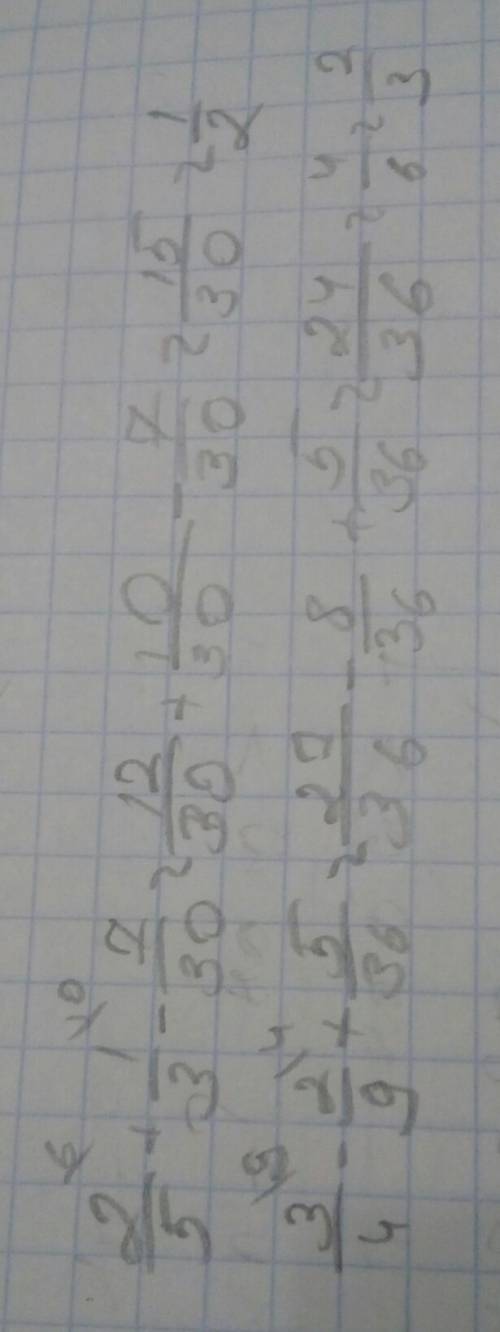 2/5 \6 + 1/3 \10 - 7/30 = 12/30 + 10/30 - 7/30 = 15/30 = 1/2
3/4 \9 - 2/9 \4 + 5/36 = 27/36 - 8/36 + 5/36 = 24/36 = 4/6 = 2/3